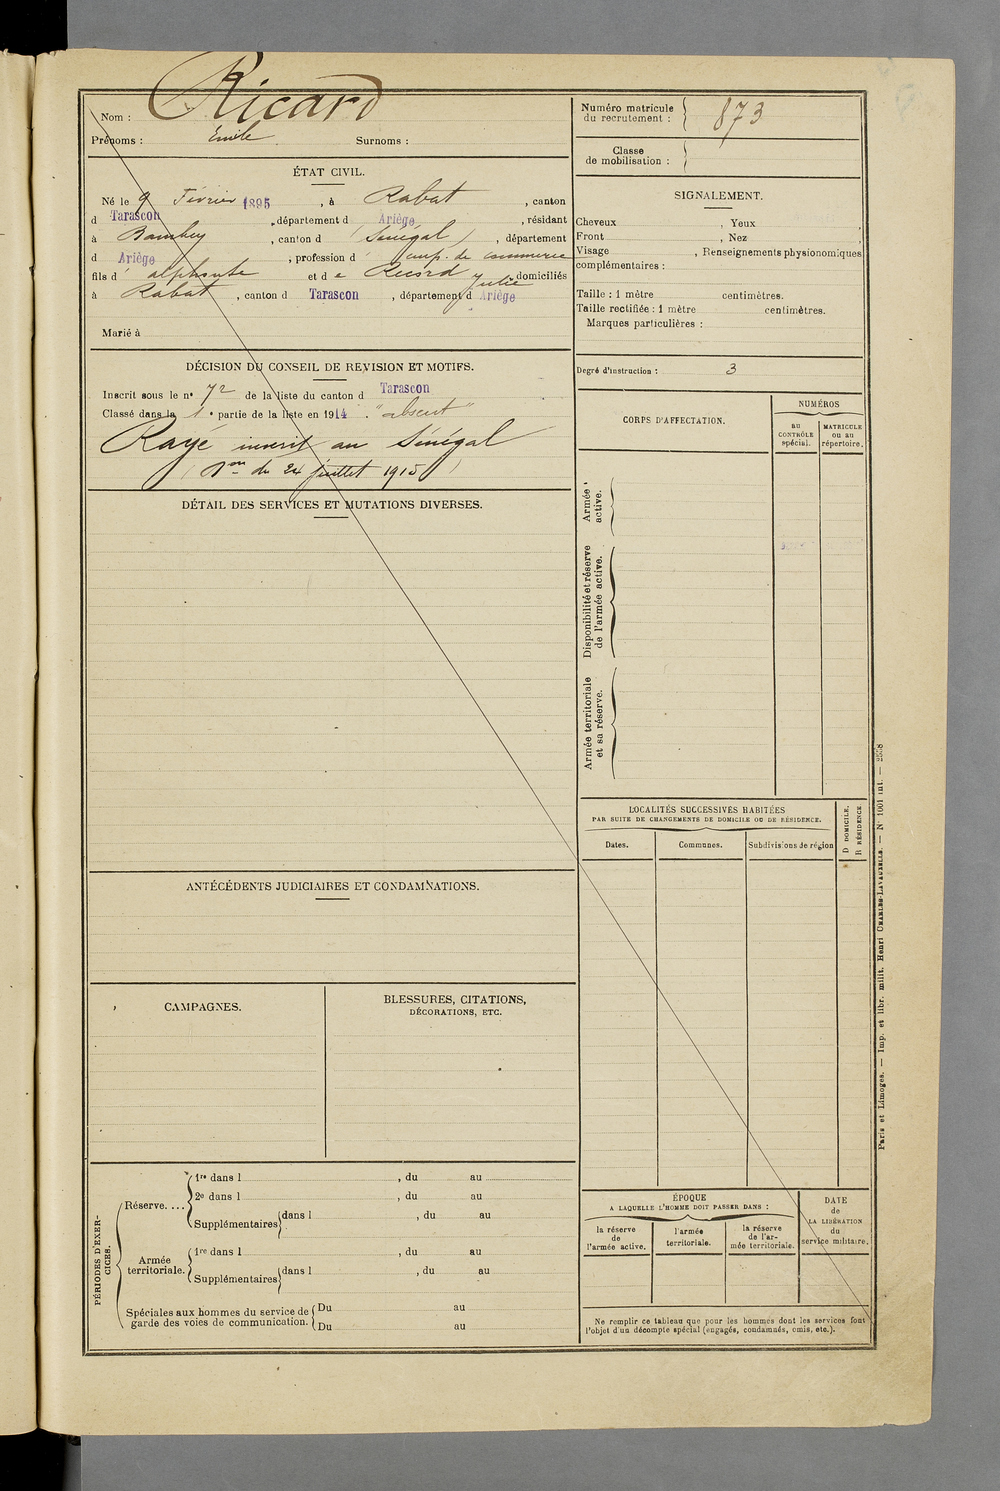 Nom : Ricard
Prénoms : Emile Surnoms :
ÉTAT CIVIL.
Né le 9 Février 1895, à Rabat, canton
d Tarascon, département d Ariège, résidant
à Bambey, canton d (Sénégal), département
d Ariège, profession d' emp. de commerce
fils d' alphonse et de Ricard Julie, domiciliés
à Rabat, canton d Tarascon, département d Ariège
Marié à
DÉCISION DU CONSEIL DE REVISION ET MOTIFS.
Inscrit sous le n° 72 de la liste du canton d Tarascon
Classé dans la 1e partie de la liste en 1914. "absent"
Rayé inscrit au Sénégal
(Don de 24 juillet 1915)
DÉTAIL DES SERVICES ET MUTATIONS DIVERSES.
ANTÉCÉDENTS JUDICIAIRES ET CONDAMNATIONS.
CAMPAGNES.
BLESSURES, CITATIONS,
DÉCORATIONS, ETC.
PÉRIODES D'EXER-
CICES.
Réserve....
1re dans l , du au
2e dans l , du au
Supplémentaires dans l , du au
Armée
territoriale.
1re dans l , du au
Supplémentaires dans l , du au
Spéciales aux hommes du service de
garde des voies de communication.
Du au
Du au
Numéro matricule
du recrutement : 873
Classe
de mobilisation :
SIGNALEMENT.
Cheveux , Yeux
Front , Nez
Visage , Renseignements physionomiques
complémentaires :
Taille : 1 mètre centimètres.
Taille rectifiée : 1 mètre centimètres.
Marques particulières :
Degré d'instruction : 3
CORPS D'AFFECTATION.
NUMÉROS
au
CONTRÔLE
spécial.
MATRICULE
ou au
répertoire.
Armée
active.
Disponibilité et réserve
de l'armée active.
Armée territoriale
et sa réserve.
LOCALITÉS SUCCESSIVES HABITÉES
PAR SUITE DE CHANGEMENTS DE DOMICILE OU DE RÉSIDENCE.
D DOMICILE.
R RÉSIDENCE.
Dates. Communes. Subdivisions de région
ÉPOQUE
A LAQUELLE L'HOMME DOIT PASSER DANS :
la réserve
de
l'armée active.
l'armée
territoriale.
la réserve
de l'ar-
mée territoriale.
DATE
de
LA LIBÉRATION
du
service militaire.
Ne remplir ce tableau que pour les hommes dont les services font
l'objet d'un décompte spécial (engagés, condamnés, omis, etc.).
Paris et Limoges. — Imp. et libr. milit. Henri CHARLES-LAVAUZELLE. — N° 1001 int. — 2558